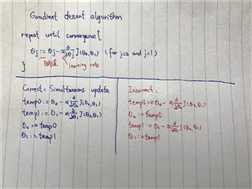 Gradient descent algorithm
repeat until convergence {
θj := θj - α ∂/∂θj J(θ0, θ1) (for j=0 and j=1)
learning rate
}
Correct: Simultaneous update
temp0 := θ0 - α ∂/∂θ0 J(θ0, θ1)
temp1 := θ1 - α ∂/∂θ1 J(θ0, θ1)
θ0 := temp0
θ1 := temp1
Incorrect:
temp0 := θ0 - α ∂/∂θ0 J(θ0, θ1)
θ0 := temp0
temp1 := θ1 - α ∂/∂θ1 J(θ0, θ1)
θ1 := temp1